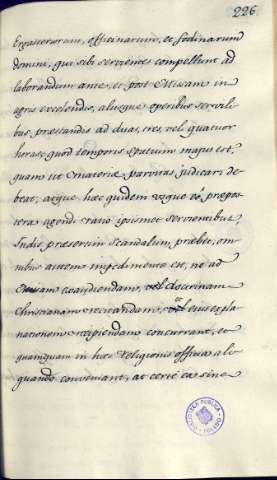 226
Ergasteriorum, officinarum, et fodinarum
domini, qui sibi servientes compellunt ad
laborandum ante, et post Missam in
agris excolendis, aliisque operibus servili-
bus, præstandis ad duas, tres, vel quatuor
horas; quod temporis spatium majus est,
quam ut materiæ parvitas judicari de-
beat, atque hæc quidem
tera agendi ratio ipsimet servientibus
Indis præsertim scandalum præbet, om-
nibus autem impedimento est, ne ad
Missam exaudiendam, doctrinam
Christianam recitandam, et ejus expla-
nationem recipiendam concurrant, et
quamquam in hæc Religionis officia ali-
quando conveniant, at certe ea sine
BIBLIOTECA PUBLICA
TOLEDO